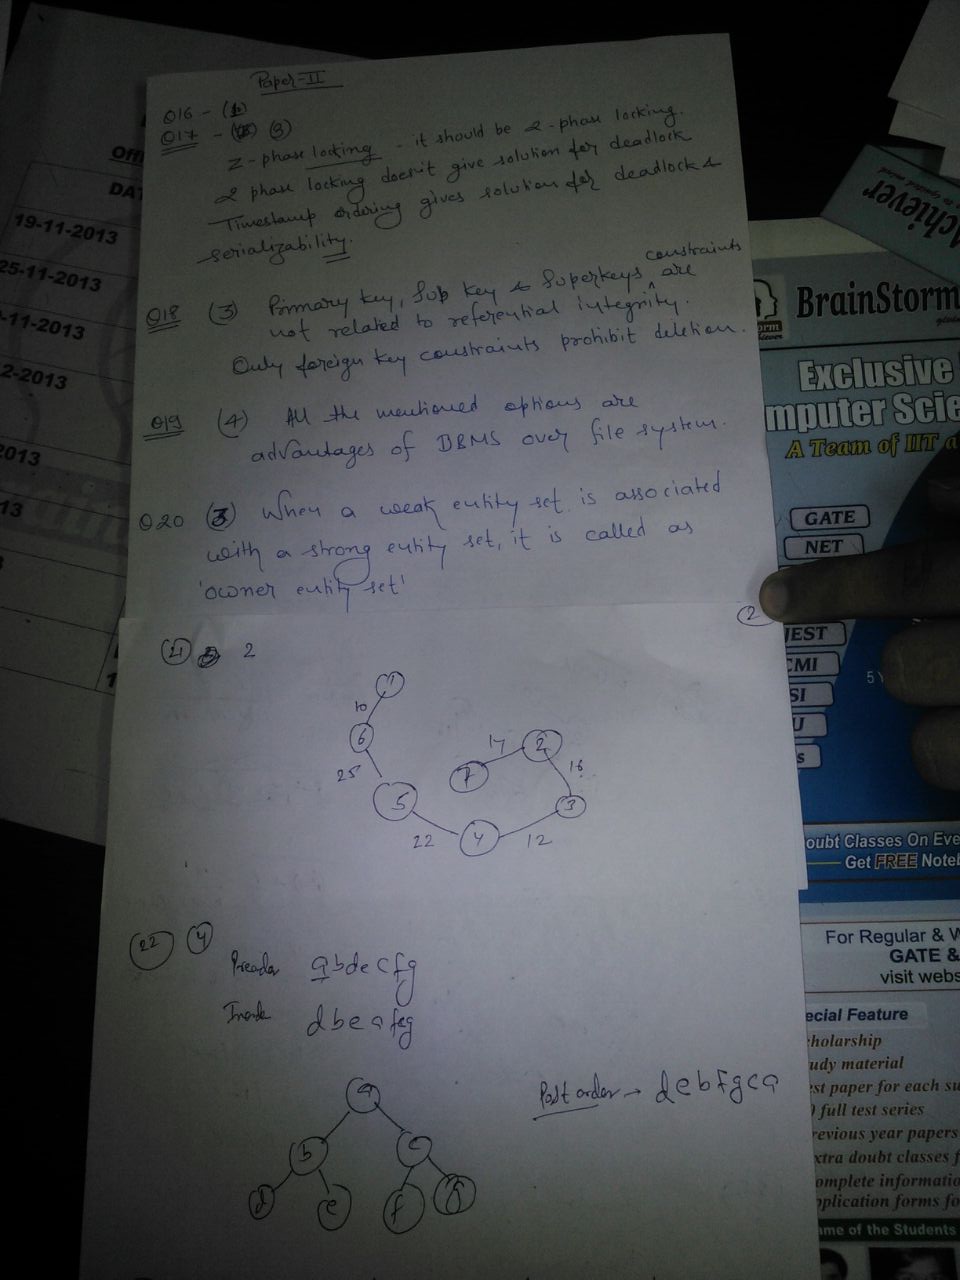 Paper-II
Q16 - (b)
Q17 - (3)
Z-phase locking - it should be 2-phase locking.
2 phase locking doesn't give solution for deadlock
Timestamp ordering gives solution for deadlock &
serializability.
constraints
Q18 (3) Primary key, Sup key & Superkeys ^ are
not related to referential integrity.
Only foreign key constraints prohibit deletion.
Q19 (4) All the mentioned options are
advantages of DBMS over file system.
Q20 (3) When a weak entity set is associated
with a strong entity set, it is called as
'owner entity set'
2
21 2
1
10
6
25
5
22
4
12
3
16
2
14
7
22 4
Preorder abdecfg
Inorder dbeafcg
a
b c
d e f g
Post order → debfgca
DAT
19-11-2013
25-11-2013
-11-2013
2-2013
2013
13
Achiever
BrainStorm
Exclusive
mputer Scie
A Team of IIT a
GATE
NET
JEST
CMI
SI
U
s
5 Y
oubt Classes On Eve
Get FREE Noteb
For Regular & W
GATE &
visit webs
ecial Feature
holarship
udy material
est paper for each su
0 full test series
revious year papers
xtra doubt classes f
omplete informatio
pplication forms fo
me of the Students